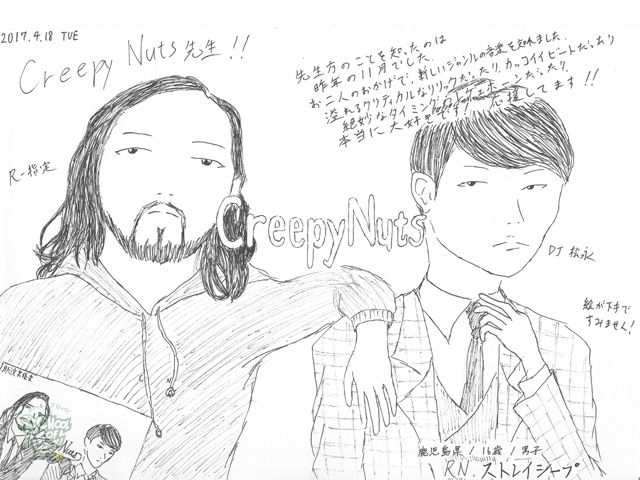 2017.4.18 TUE
Creepy Nuts 先生!!
先生方のことを知ったのは
昨年の11月でした。
お二人のおかげで、新しいジャンルの音楽を知れました。
溢れるクリティカルなリリックだったり、カッコイイビートだったり
絶妙なタイミングの
だったり、
本当に大好きです。応援してます!!
R-指定
CreepyNuts
DJ 松永
絵が下手で
すみません!
鹿児島県 / 16歳 / 男子
R.N. ストレイシープ